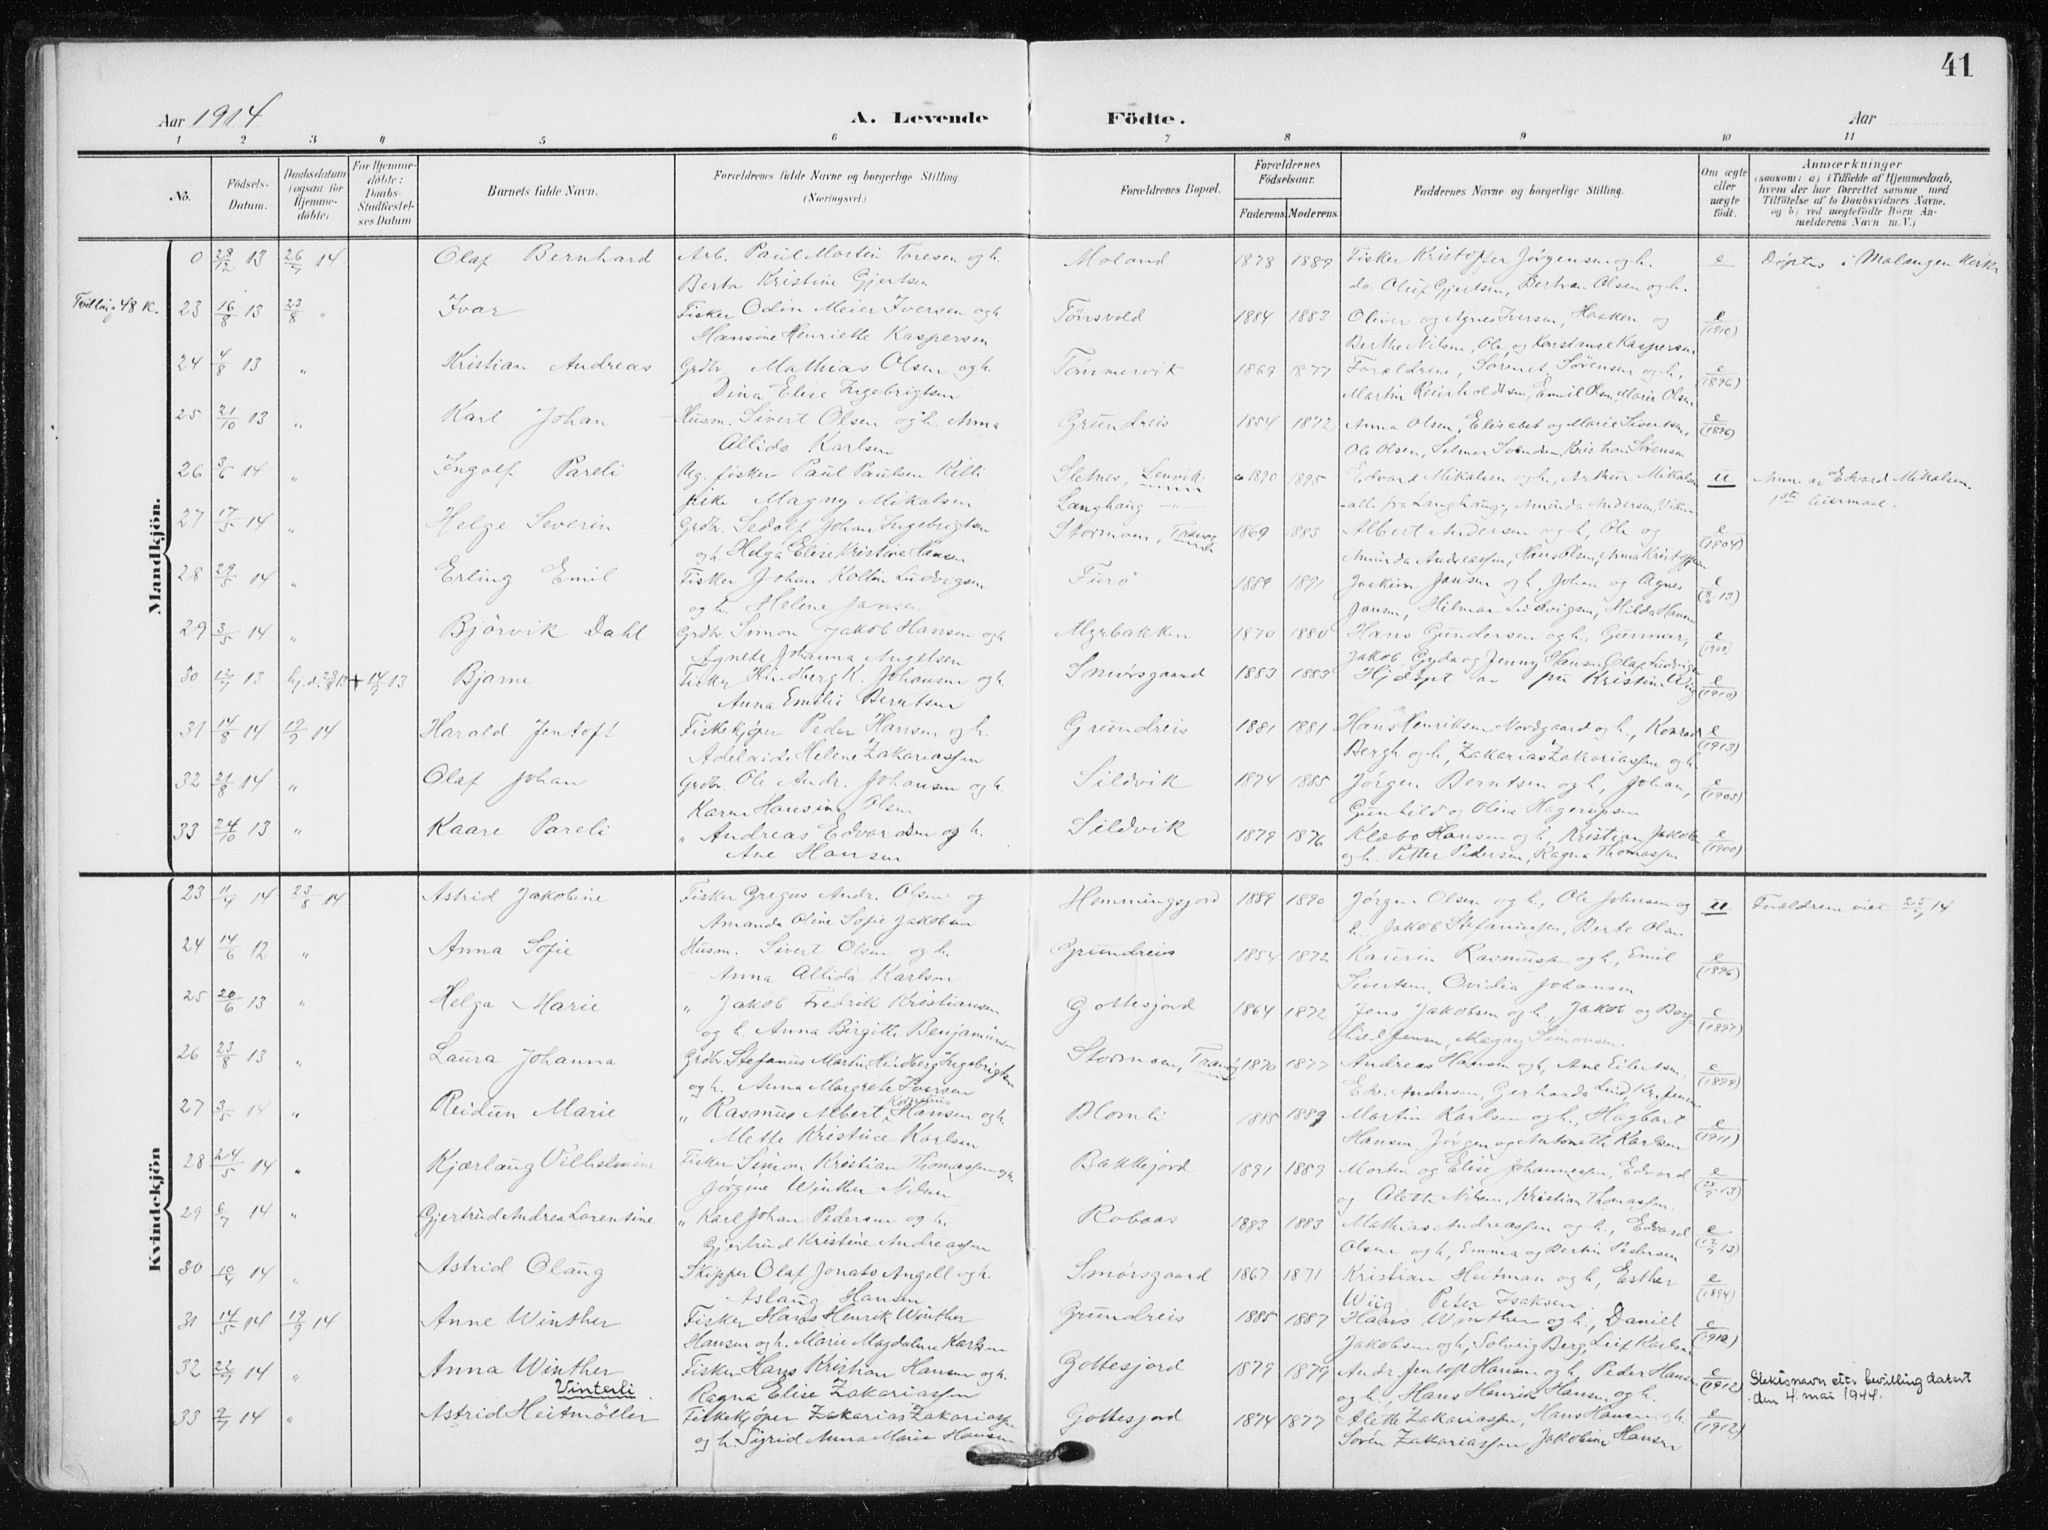 41
Aar 1914 A. Levende Födte. Aar
1 2 3 4 5 6 7 8 9 10 11
No. Födsels-Datum. Daabsdatum (ogsaa for Hjemme-döbte) For Hjemme-döbte: Daabs-Stadfæstel-ses Datum Barnets fulde Navn. Forældrenes fulde Navne og borgerlige Stilling. (Næringsvei.) Forældrenes Bopæl. Forældrenes Födselsaar. Faderens. Moderens. Faddernes Navne og borgerlige Stilling. Om ægte eller uægte födt. Anmærkninger (saasom: a) i Tilfælde af Hjemmedaab, hvem der har forrettet samme med Tilföielse af to Daabsvidners Navne, og b) ved uægtefödte Börn An-melderens Navn m.V.)
Mandkjön.
0 28/12 13 26/7 14 Olaf Bernhard Arb. Paul Martin Toresen og h. Moland 1878 1889 Fisker Kristoffer Jørgensen og h. e Døptes i Malangen Kirke
Berta Kristine Gjertsen do. Oluf Gjertsen, Bertran Olsen og h.
Tvilling 48 K. 23 16/8 13 23/8 " Ivar Fisker Odin Meier Iversen og h. Tønsvold 1884 1883 Oliver og Agnes Iversen, Haaken og e
Hansine Henriette Kaspersen Berthe Nilsen, Ole og Konstanse Kaspersen (1910)
24 4/8 13 " Kristian Andreas Grdbr. Mathias Olsen og h. Tømmervik 1869 1877 Forældrene, Sørensen og h., e
Dina Elise Ingebrigtsen Martin Reinholdtsen, Emil Olsen, Marie Olsen (1896)
25 21/10 13 " Karl Johan Husm. Sivert Olsen og h. Anna Grundreis 1854 1872 Anna Olsen, Elisabet og Marie Sivertsen, e
Allida Karlsen Ole Olsen, Selmer Svendsen, Kristian Sørensen (1896)
26 3/6 14 " Ingolf Pareli Ug. fisker Paul Paulsen Killi Sletnes, Lenvik 1890 1895 Edvard Mikalsen og h., Arthur Mikalsen u Anm. av Edvard Mikalsen.
pike Magny Mikalsen Langhaug alle fra Langhaug, Amunda Andersen, Viken 1ste leiermaal.
27 17/5 14 " Helge Severin Grdbr. Sedolf Johan Ingebrigtsen Stormoen, Tranøy 1869 1883 Albert Andersen og h., Ole og e
og h. Helga Elise Kristine Hansen Amunda Andreassen, Hans Olsen, Anna Kristoffersen (1904)
28 29/5 14 " Erling Emil Fisker Johan Koltin Ludvigsen Furø 1889 1891 Joakim Jansen og h., Johan og Agnes e
og h. Helene Jansen Jansen, Hilmar Ludvigsen, Hilda Hansen (8/" 13)
29 3/5 14 " Bjørvik Dahl Grdbr. Simon Jakob Hansen og h. Myrbakken 1870 1880 Hans Gundersen og h., Gunnar, e
Agnete Johanna Angelsen Jakob, Gyda og Jenny Hansen, Olaf Ludvigsen (1900)
30 12/7 13 hj.d. 28/8 13 + 14/9 13 Bjarne Fisker Hindberg K. Johansen og h. Smørsgaard 1883 1883 Hjdøpt av frk Kristine Wiig e
Anna Emilie Berntsen (1910)
31 14/8 14 19/9 14 Harald Jentoft Fiskekjøper Peder Hansen og h. Grundreis 1881 1881 Hans Henriksen Nordgaard og h., Konrad e
Adelaide Helene Zakariassen Bergh og h., Zakarias Zakariassen og h. (1913)
32 21/8 14 " Olaf Johan Grdbr. Ole Andr. Johansen og h. Sildvik 1874 1885 Jørgen Berntsen og h., Johan, e
Karen Hansine Olsen Gunhild og Oline Hagerupsen (1905)
33 24/10 13 " Kaare Pareli " Andreas Edvardsen og h. Sildvik 1879 1876 Klæbo Hansen og h., Kristian Jakobsen e
Ane Hansen og h. Petter Pedersen, Ragna Thomassen (1900)
Kvindekjön
23 11/4 14 23/8 14 Astrid Jakobine Fisker Gregus Andr. Olsen og Hemmingsjord 1889 1890 Jørgen Olsen og h., Ole Johnsen og u Forældrene viet 25/7 14
Amanda Oline Sofie Jakobsen h., Jakob Stefanussen, Berte Olsen
24 14/6 12 " Anna Sofie Husm. Sivert Olsen og h. Grundreis 1854 1872 Kaurin Rasmussen og h., Emil e
Anna Allida Karlsen Sivertsen, Ovidia Johansen (1896)
25 20/6 13 " Helga Marie " Jakob Fredrik Kristiansen Gottesjord 1864 1872 Jens Jakobsen og h., Jakob og Berg- e
og h. Anna Birgitte Benjaminsen lised Jensen, Magny Simonsen. (1897)
26 23/8 13 " Laura Johanna Grdbr. Stefanus Martin Hindberg Ingebrigtsen Stormoen, Tranøy 1870 1877 Andreas Hansen og h., Ane Eilertsen, e
og h. Anna Margrete Iversen Edv. Andersen, Gerharda Lind, Kr. Jensen (1899)
27 3/5 14 " Reidun Marie " Rasmus Albert Kornelius Hansen og h. Blomli 1885 1889 Martin Karlsen og h., Hagbart e
Mette Kristine Karlsen Hansen, Jørgen og Antonette Karlsen (1911)
28 24/5 14 " Kjærlaug Vilhelmine Fisker Simon Kristian Thomassen og h. Bakkejord 1891 1889 Morten og Elise Johannessen, Edvard e
Jørgine Winther Nilsen og Alette Nilsen, Kristian Thomassen. (28/9 13)
29 6/7 14 " Gjertrud Andrea Lorentine " Karl Johan Pedersen og h. Robaas 1883 1883 Mathias Andreassen og h., Edvard e
Gjertrud Kristine Andreassen Olsen og h., Emma og Bertin Pedersen (12/9 13)
30 10/7 14 " Astrid Olaug Skipper Olaf Jonats Angell og h. Smørsgaard 1867 1871 Kristian Heitman og h., Esther e
Aslaug Hansen Wiig, Peter Isaksen (1894)
31 14/5 14 19/9 14 Anne Winther Fisker Hans Henrik Winther Grundreis 1885 1887 Hans Winther og h., Daniel e
Hansen og h. Marie Magdalena Karlsen Jakobsen og h., Solveig Berg, Leif Karlsen (1910)
32 22/7 14 " Anna Winther Fisker Hans Kristian Hansen og h. Gottesjord 1879 1879 Andr. Jentoft Hansen og h., Peder Hansen e Slektsnavn etr. bevilling datert
Vinterli Ragna Elise Zakariassen og h., Hans Henrik Hansen og h. (1912) den 4. mai 1944.
33 9/7 14 " Astrid Heitmöller Fiskekjøper Zakarias Zakariassen Gottesjord 1874 1877 Alette Zakariassen, Hans Hansen og h. e
og h. Sigrid Anna Marie Hansen Soren Zakariassen, Jakobine Hansen (1912)